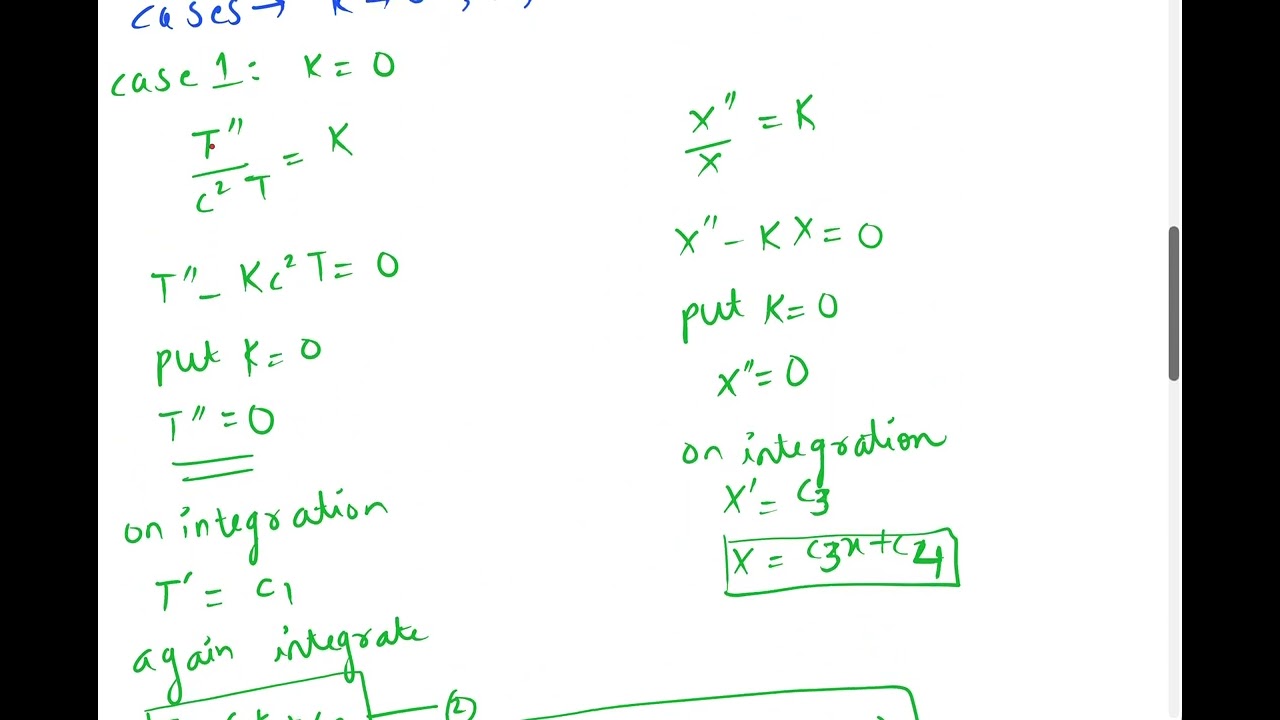 cases →
case 1: K = 0
T''/c² T = K
T'' - Kc² T = 0
put K = 0
T'' = 0
on integration
T' = c1
again integrate
②
X''/X = K
X'' - K X = 0
put K = 0
X'' = 0
on integration
X' = C3
X = C3x + C4